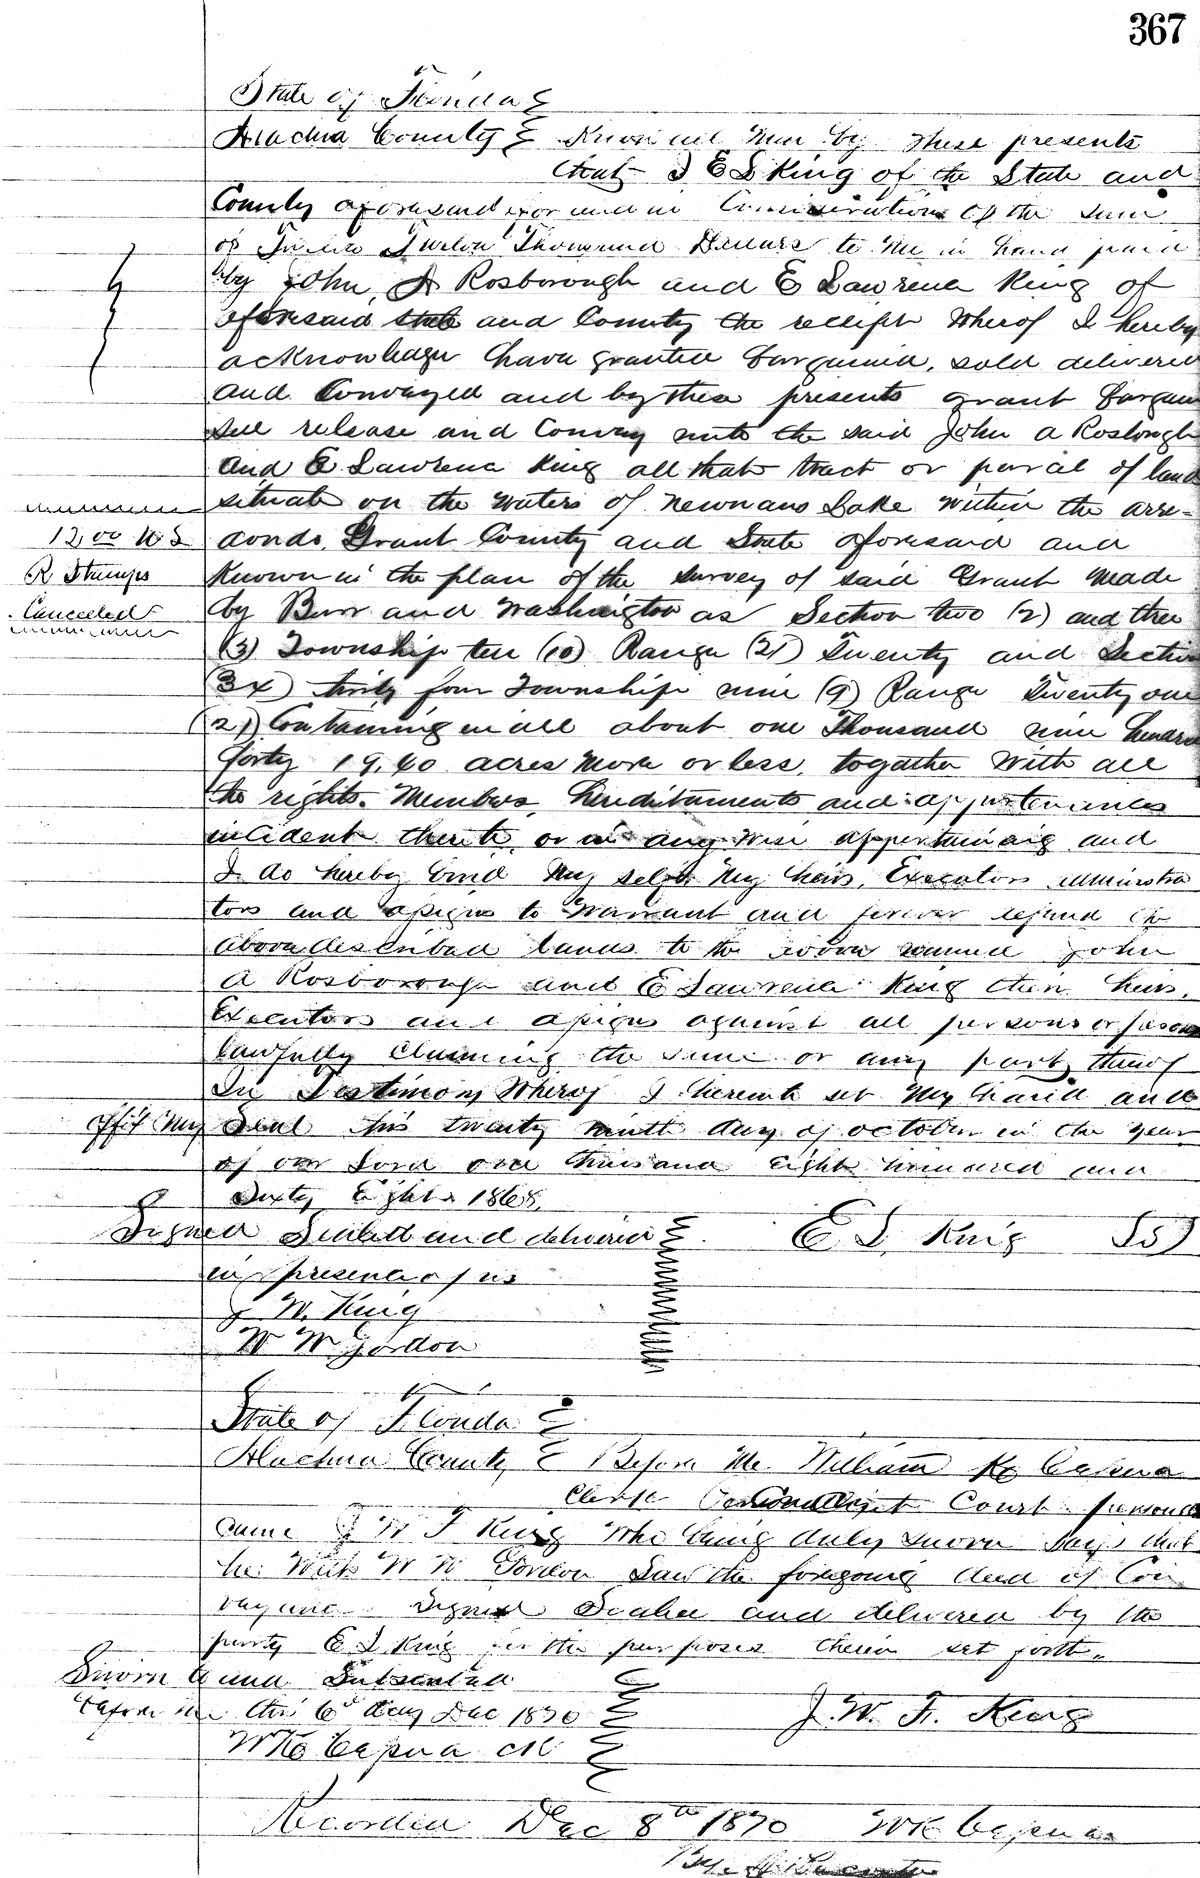 367
State of Florida
Alachua County Know all Men by These presents
that I E L King of the State and
County aforesaid for and in Consideration of the sum
of Twelve Thousand Dollars to Me in hand paid
by John A Rosborough and E Lawrence King of
aforesaid State and County the receipt Wherof I hereby
acknowledge have granted bargained, sold delivered
and Conveyed and by these presents grant bargain
sell release and Convey unto the said John A Rosborough
and E Lawrence King all that tract or parcel of land
situate on the Waters of Newnans Lake Within the arre-
12,00 U S
dondo Grant County and State aforesaid and
R Stamps
Known in the plan of the survey of said Grant Made
Canceled
by Burr and Washington as Section two (2) and three
(3) Township ten (10) Range (21) Twenty and Section
(34) thirty four Township nine (9) Range Twenty one
(21) Containing in all about one Thousand nine hundred
forty 19,40 acres More or less, together With all
the rights, Members, hereditaments and appurtenances
incident thereto, or in any wise appertaining and
I do hereby bind My self My heirs, Executors administra
tors and assigns to Warrant and forever defend the
above described lands to the above named John
A Rosborough and E Lawrence King their heirs,
Executors and assigns against all persons or person
lawfully Claiming the same or any part therof
In Testimony Wherof I hereunto set My hand and
affix My Seal this twenty ninth day of October in the year
of our Lord one thousand Eight hundred and
Sixty Eight 1868,
Signed Sealed and delivered E L King (LS)
in presence of us
J W King
W W Gordon
State of Florida
Alachua County Before Me William K Cessna
Clerk Circuit Court personally
came J W F King Who being duly sworn says that
he With W W Gordon Saw the foregoing deed of Con
veyance Signed Sealed and delivered by the
party E L King for the purposes therein set forth.
Sworn to and Subscribed
before me this 6th day Dec 1870 J. W. F. King
W K Cessna Clk
Recorded Dec 8th 1870 W K Cessna
By